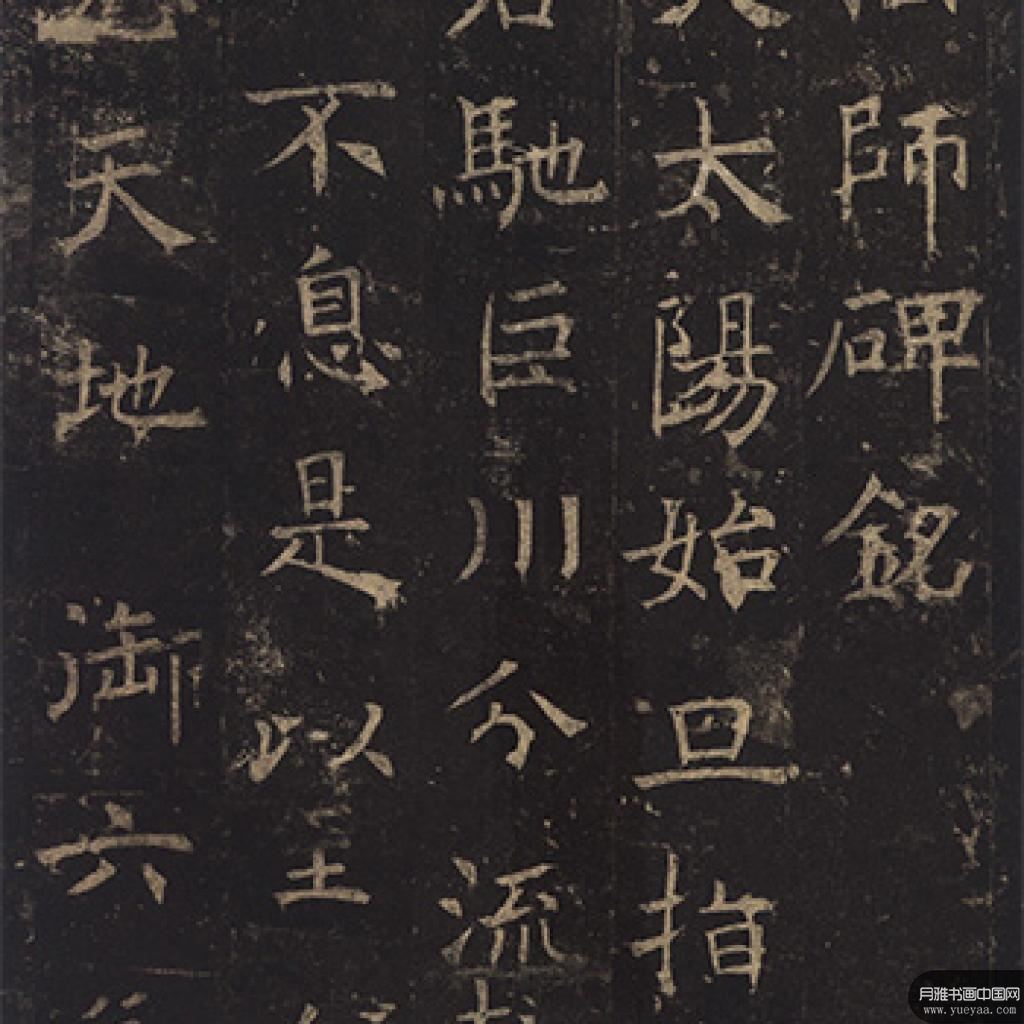 師碑銘
太陽始旦指
馳巨川分流
不息是以
天地御六
月雅书画中国网
www.yueyaa.com